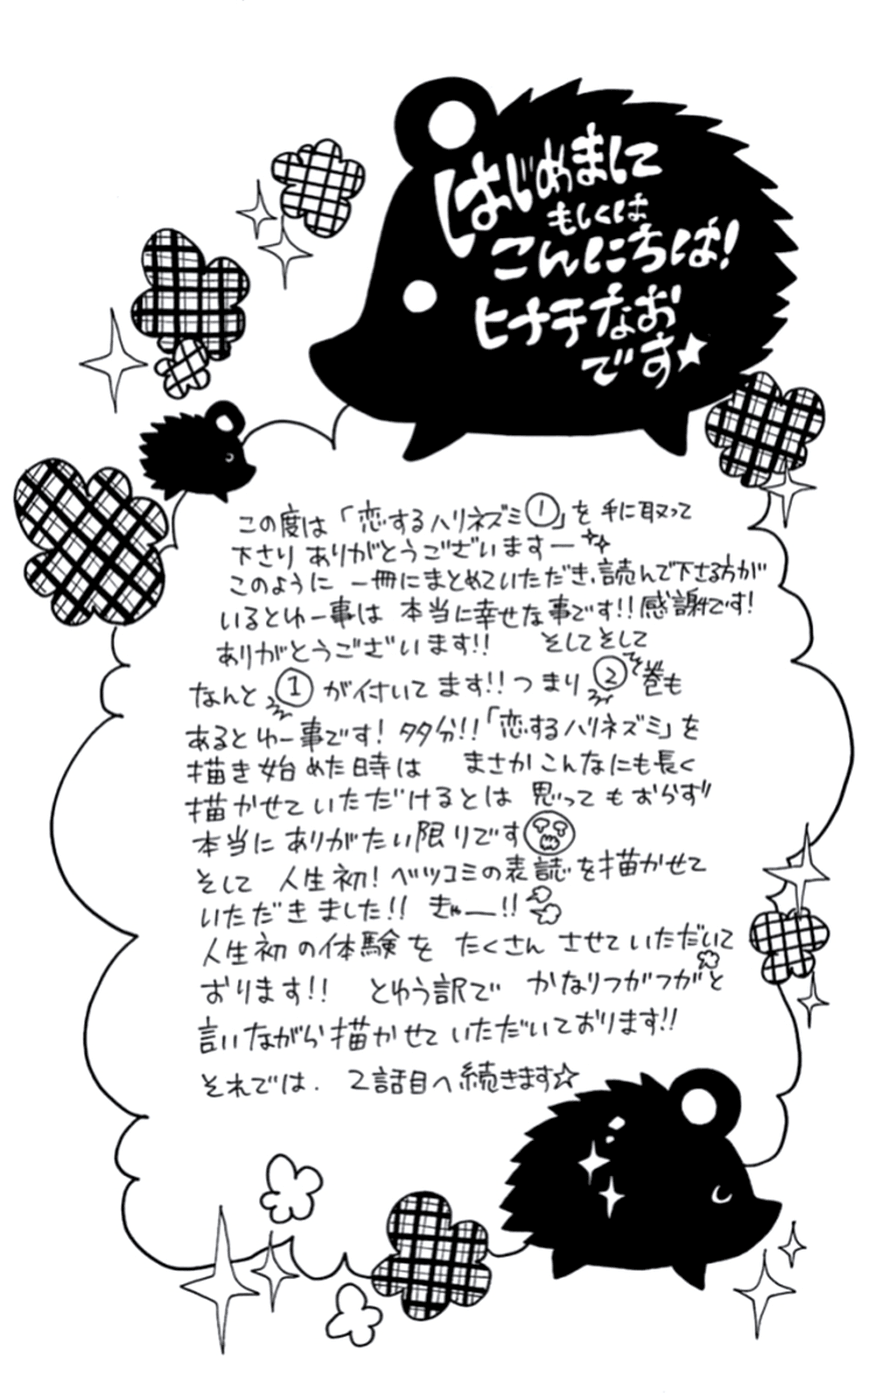 はじめまして
もしくは
こんにちは!
ヒナチなお
です★
この度は「恋するハリネズミ①」を手に取って
下さりありがとうございますー
このように一冊にまとめていただき、読んで下さる方が
いるとゆー事は本当に幸せな事です!!感謝です!
ありがとうございます!! そしてそして
なんと①が付いてます!!つまり②巻も
あるとゆー事です!多分!!「恋するハリネズミ」を
描き始めた時は まさかこんなにも長く
描かせていただけるとは思ってもおらず!!
本当にありがたい限りです
そして 人生初!ベツコミの表誌を描かせて
いただきました!! きゃー!!
人生初の体験を たくさんさせていただいて
おります!! とゆう訳で かなりつがつがと
言いながら描かせていただいております!!
それでは. 2話目へ続きます☆